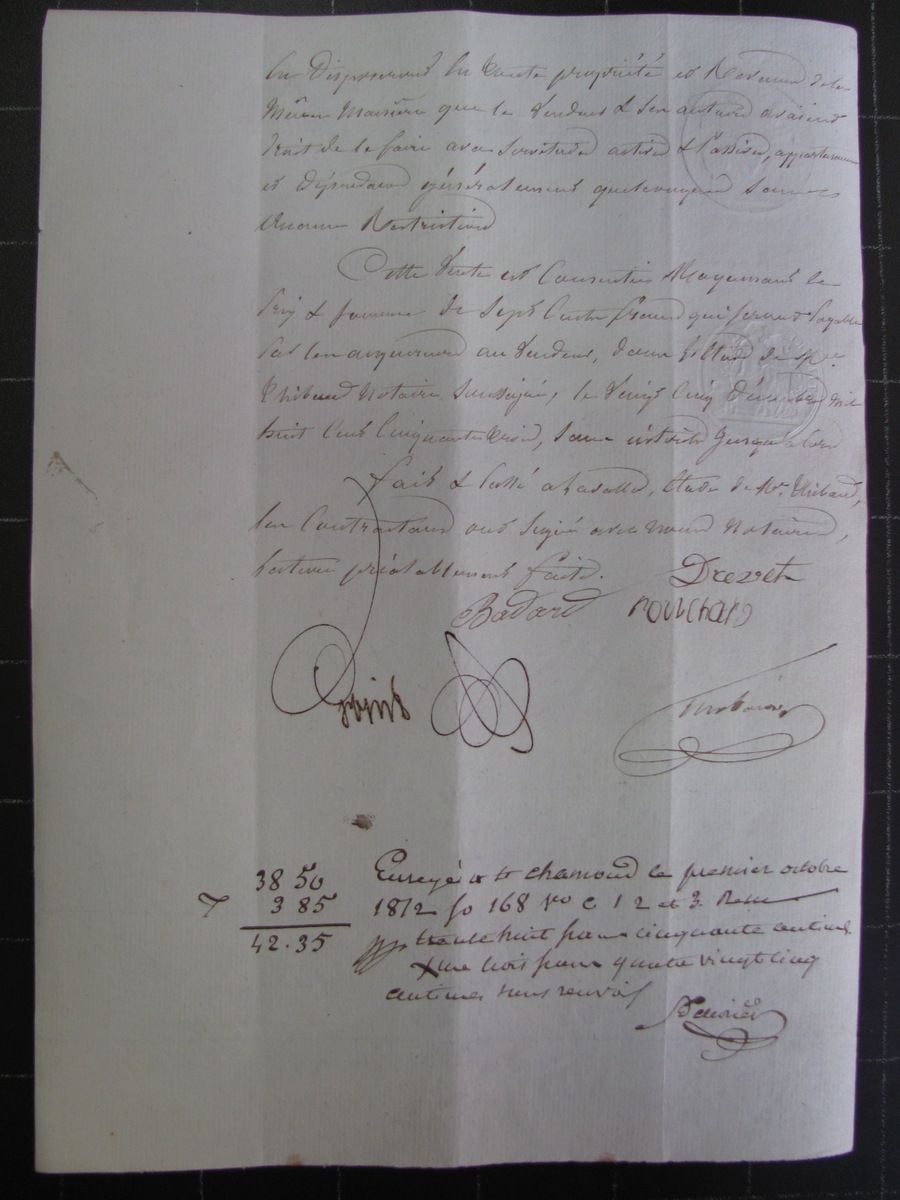 en disposeront en toute propriété et de la
même manière que le vendeur & ses auteurs avaient
droit de le faire avec servitudes actives & passives, appartenances
et dépendances généralement quelconques sans
aucune Restriction
Cette Vente est Consentie Moyennant le
Prix & somme de Sept Cents francs qui seront Payables
Par les acquéreurs au Vendeur, dans l'Etude de Me
Thibaud Notaire Soussigné, le Vingt Cinq Décembre Mil
huit Cent Cinquante trois, sans intérêts Jusqu'alors
fait & Passé a Lavalla, Etude de Me. Thibaud,
les Contractants ont signé avec nous Notaires,
lecture préalablement faite.
Drevet
Badard rouchard
Enregé a St chamond le premier octobre
38 50
1852 fo 168 vo c 1 2 et 3. Reçu
3 85
trente huit francs cinquante centimes
42.35
trois francs quatre vingt cinq
centimes sans renvoi